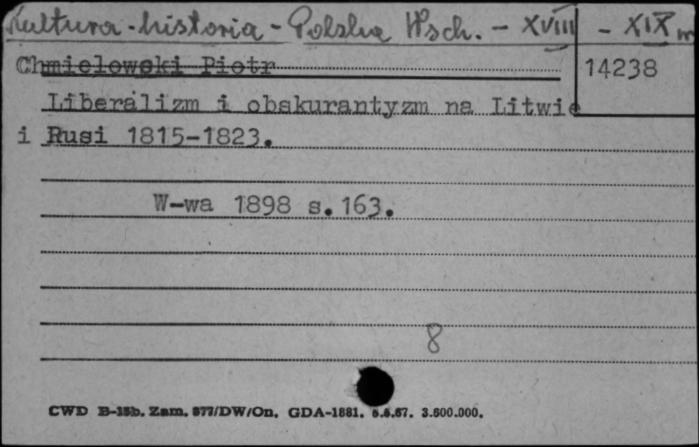 Kultura - historia - Polska Wsch. - XVIII - XIX w
Chmielowski Piotr 14238
Liberalizm i obskurantyzm na Litwie
i Rusi 1815-1823.
W-wa 1898 s. 163.
8
CWD B-15b. Zam. 877/DW/On. GDA-1881. 5.5.67. 3.500.000.